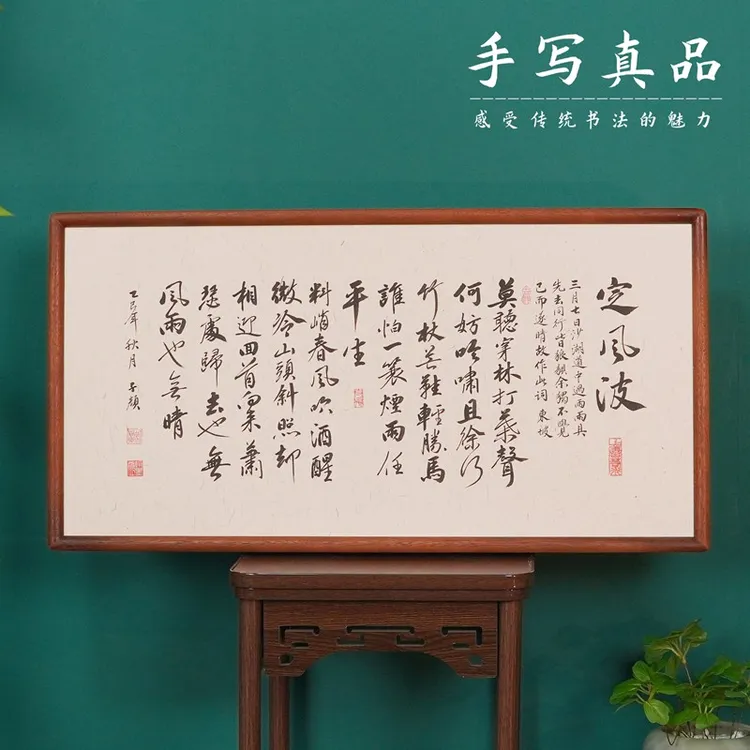 手写真品
感受传统书法的魅力
定風波
三月七日沙湖道中遇雨雨具
先去同行皆狼狽余獨不覺
已而遂晴故作此詞 東坡
莫聽穿林打葉聲
何妨吟嘯且徐行
竹杖芒鞋輕勝馬
誰怕一蓑煙雨任
平生
料峭春風吹酒醒
微冷山頭斜照卻
相迎回首向來蕭
瑟處歸去也無
風雨也無晴
乙巳年秋月